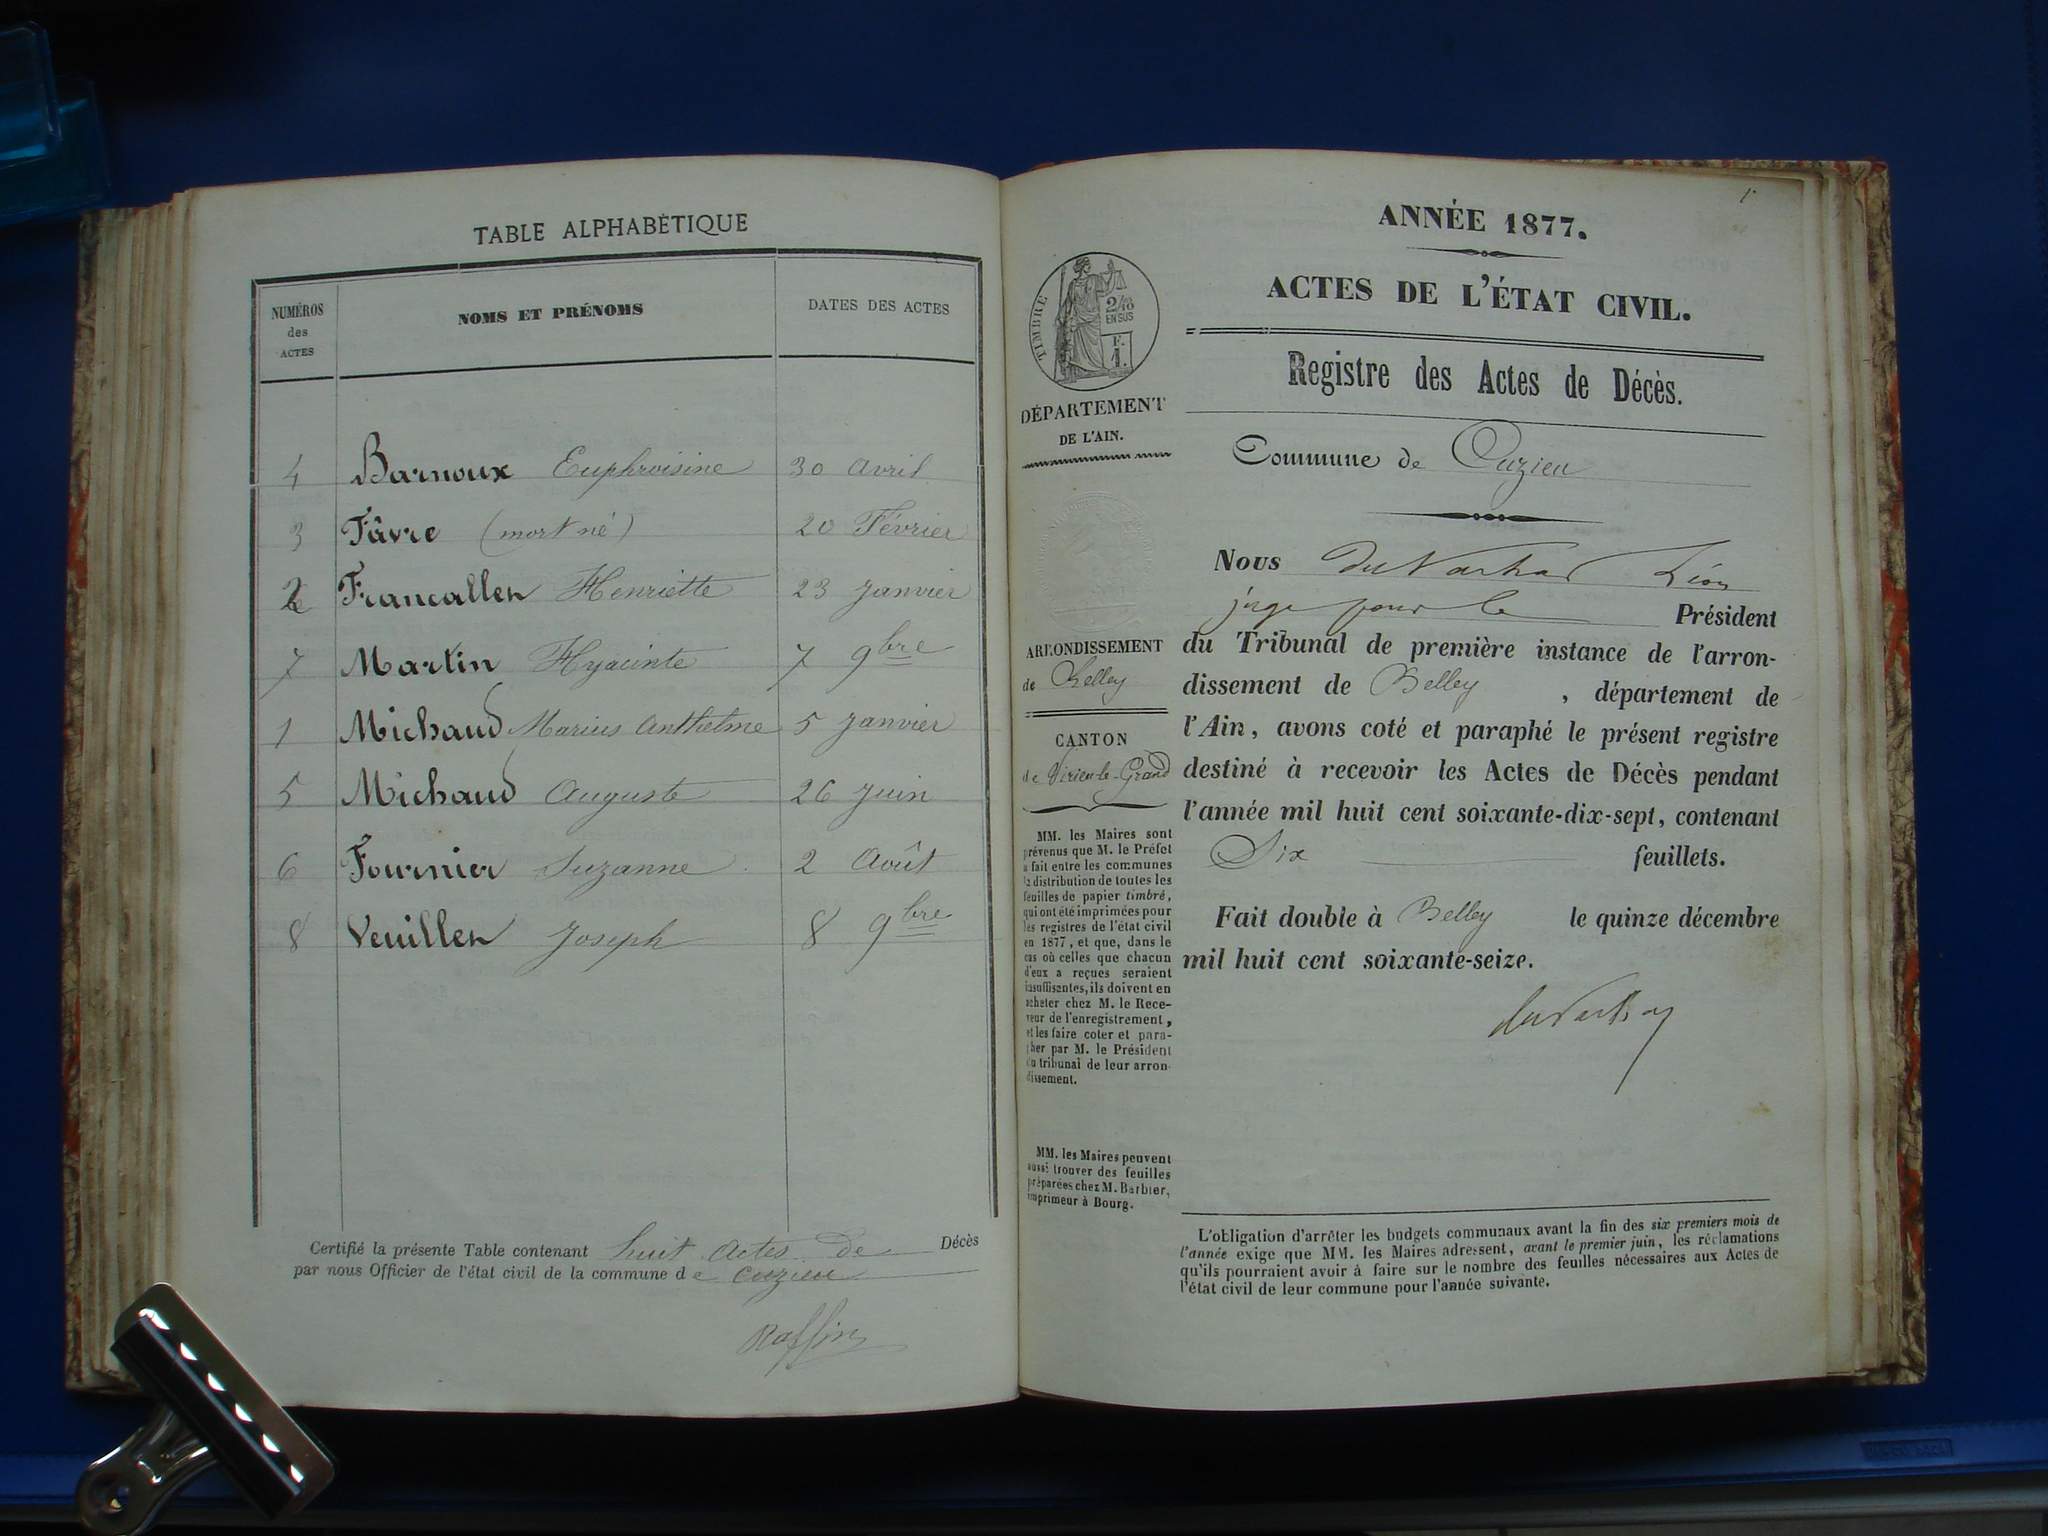 TABLE ALPHABÉTIQUE
NUMÉROS des ACTES
NOMS ET PRÉNOMS
DATES DES ACTES
4 Barnoux Euphroisine 30 Avril
3 Fâvre (mort né) 20 Février
2 Francallet Henriette 23 Janvier
7 Martin Hyacinte 7 9bre
1 Michaud Marius Anthelme 5 Janvier
5 Michaud Auguste 26 Juin
6 Fournier Suzanne 2 Août
8 Veuillet Joseph 8 9bre
Certifié la présente Table contenant huit actes de Décès
par nous Officier de l'état civil de la commune de Cuzieu
Raffin
1r
ANNÉE 1877.
ACTES DE L'ÉTAT CIVIL.
Registre des Actes de Décès.
TIMBRE
2/10
EN SUS
F.
1.
DÉPARTEMENT
DE L'AIN.
ARRONDISSEMENT
de Belley
CANTON
de Virieu-le-Grand
MM. les Maires sont
prévenus que M. le Préfet
a fait entre les communes
la distribution de toutes les
feuilles de papier timbré,
qui ont été imprimées pour
les registres de l'état civil
en 1877, et que, dans le
cas où celles que chacun
d'eux a reçues seraient
insuffisantes, ils doivent en
acheter chez M. le Rece-
veur de l'enregistrement,
et les faire coter et para-
pher par M. le Président
du tribunal de leur arron-
dissement.
MM. les Maires peuvent
aussi trouver des feuilles
préparées chez M. Barbier,
imprimeur à Bourg.
Commune de Cuzieu
Nous Léon
juge pour le Président
du Tribunal de première instance de l'arron-
dissement de Belley, département de
l'Ain, avons coté et paraphé le présent registre
destiné à recevoir les Actes de Décès pendant
l'année mil huit cent soixante-dix-sept, contenant
Six feuillets.
Fait double à Belley le quinze décembre
mil huit cent soixante-seize.
L'obligation d'arrêter les budgets communaux avant la fin des six premiers mois de
l'année exige que MM. les Maires adressent, avant le premier juin, les réclamations
qu'ils pourraient avoir à faire sur le nombre des feuilles nécessaires aux Actes de
l'état civil de leur commune pour l'année suivante.